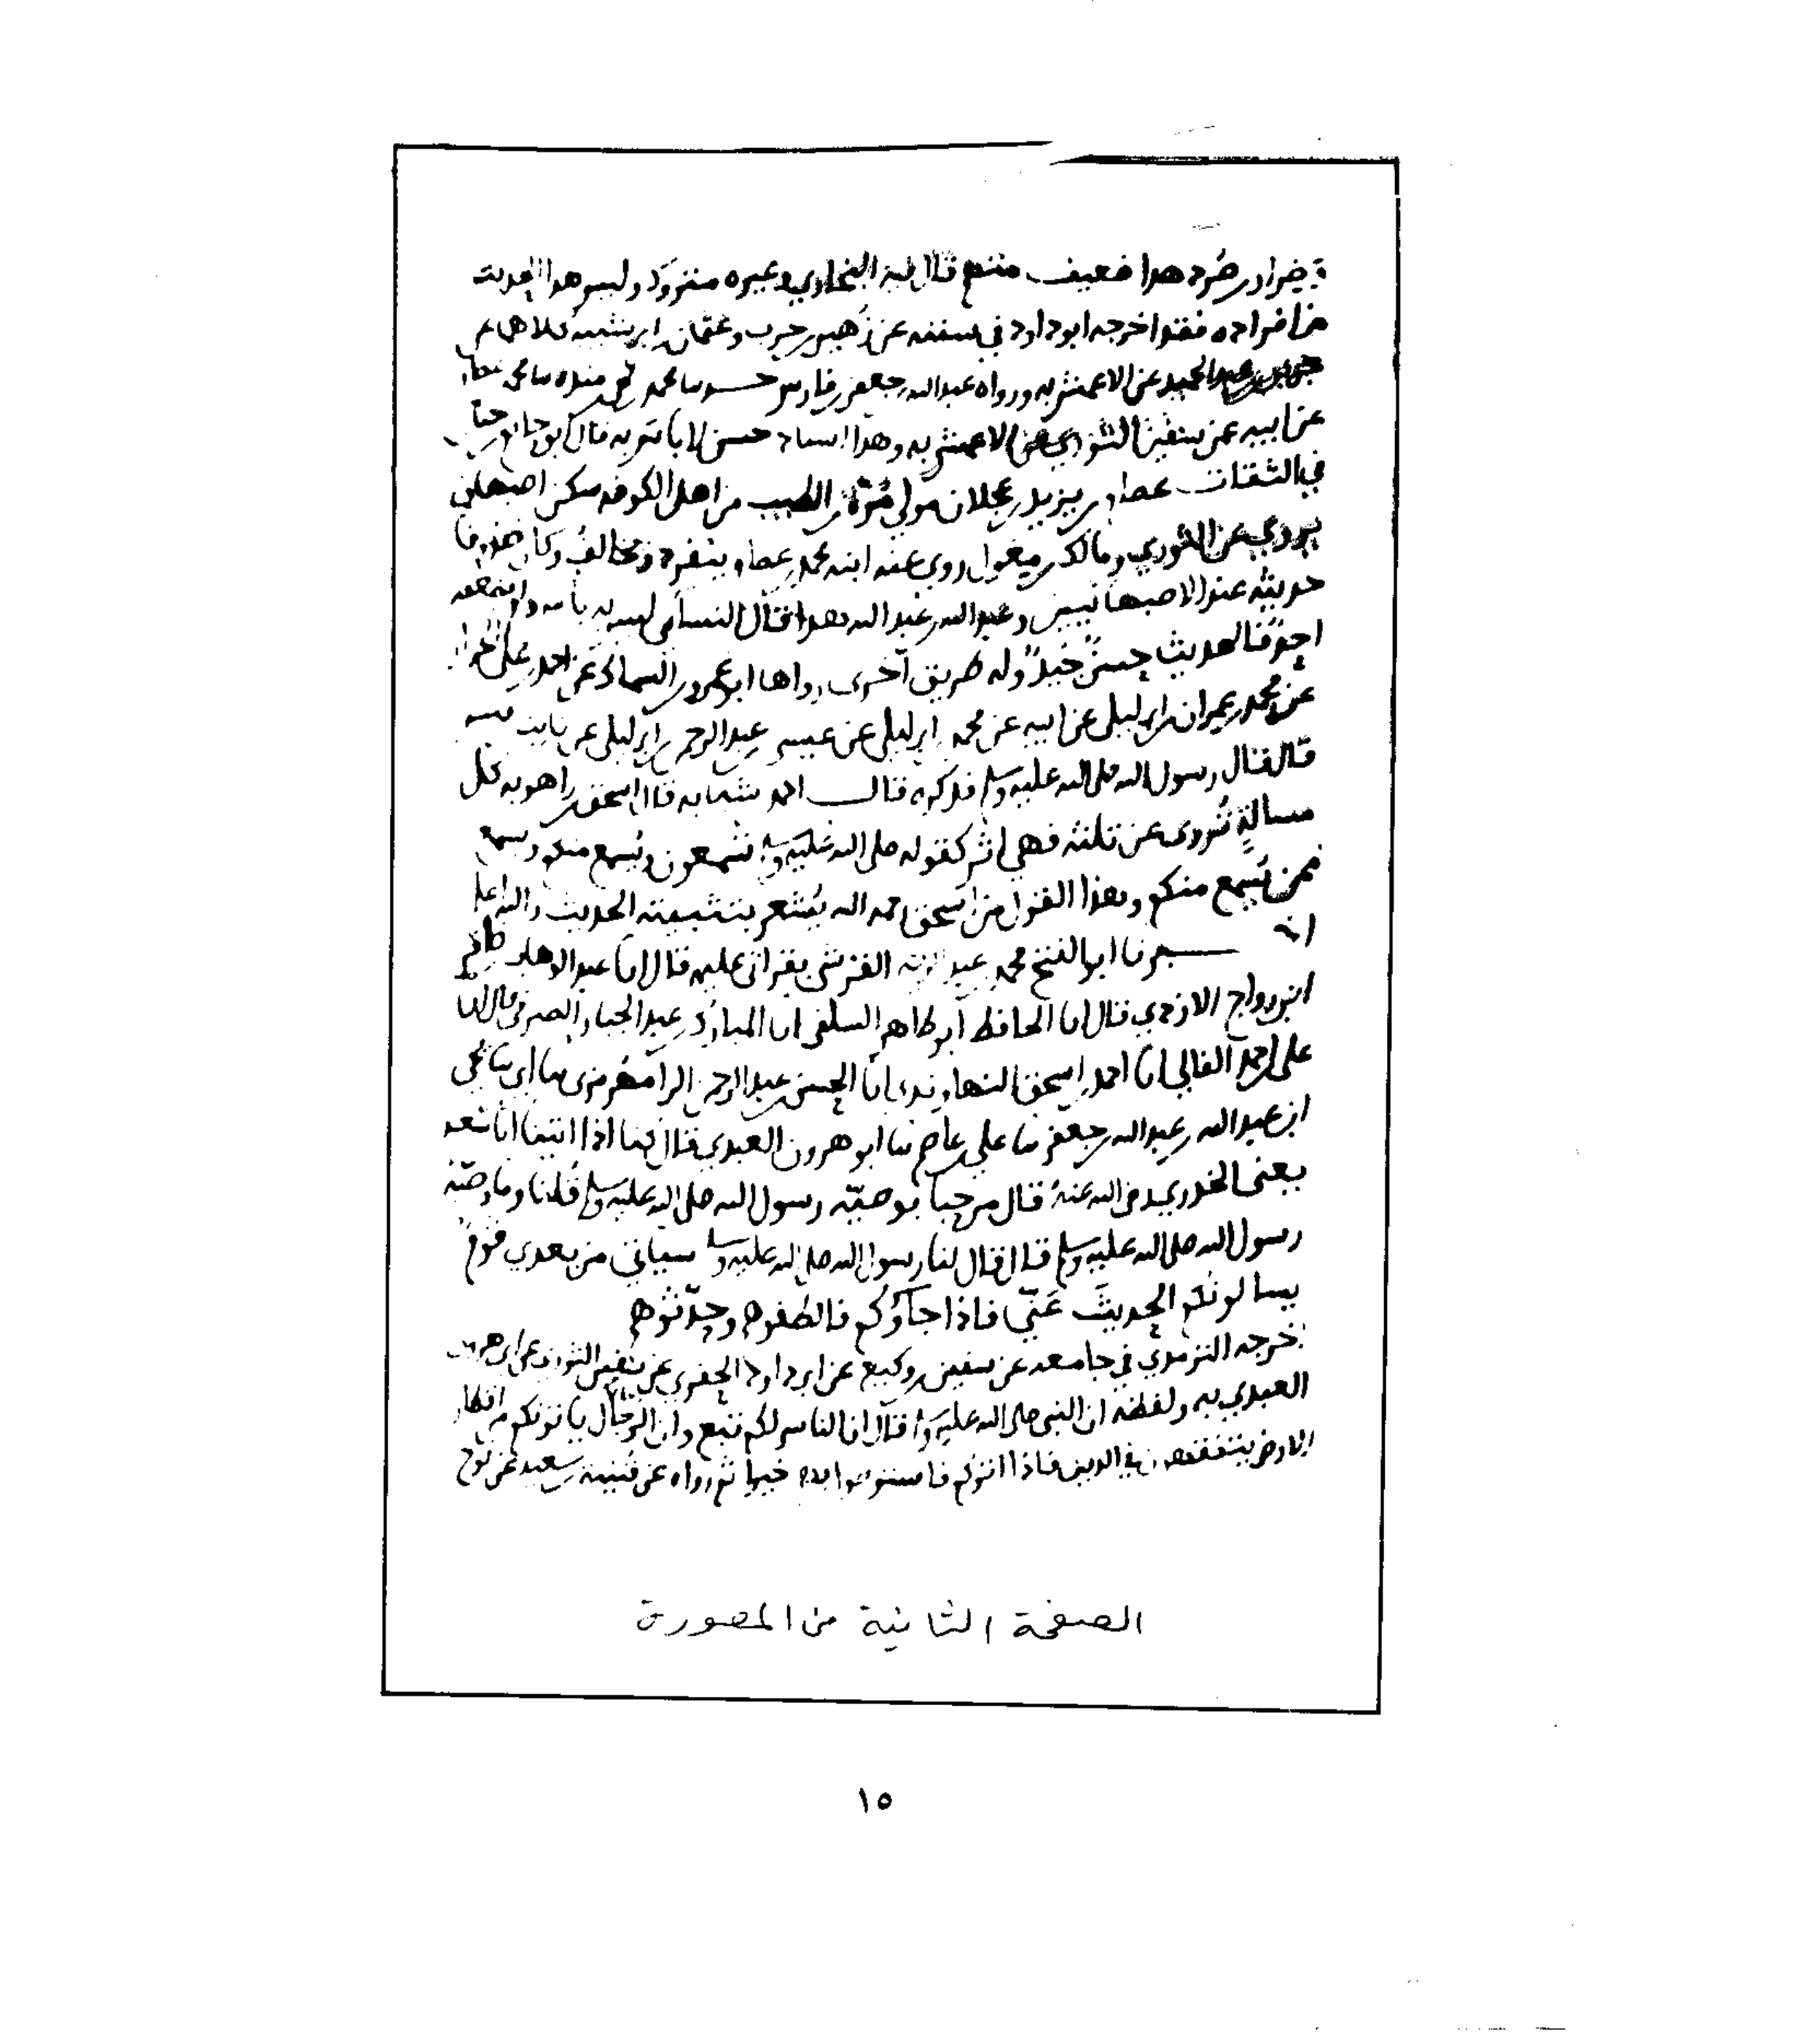 ضرار بن صرد هذا ضعيف قال فيه البخاري وغيره متروك وليس هذا الحديث
من افراده فقد اخرجه ابو داود في سننه عن زهير بن حرب وعثمان بن ابي شيبة كلاهما عن
جرير بن عبد الحميد عن الاعمش به ورواه عبد الله بن جعفر بن فارس محمد بن
عن ابيه عن سفين الثوري عن الاعمش به وهذا اسناد حسن لا باس به قال ابو حاتم بن حبان
في الثقات عصام بن يزيد بن عجلان مولى مرة الطيب من اهل الكوفة سكن اصبهان
يروي عن الثوري ومالك بن مغول روى عنه ابنه محمد بن عصام يتفرد ويخالف وكان صدوقا
حديثه عند الاصبهانيين وعبد الله بن عبد الله هذا قال النسائي ليس به باس
فالحديث حسن جيد وله طريق اخرى رواها ابو عمرو بن السماك عن احمد بن علي
عن محمد بن عمران بن ابي ليلى عن ابيه عن محمد بن ابي ليلى عن عيسى بن عبد الرحمن بن ابي ليلى عن ثابت بن قيس
قال قال رسول الله صلى الله عليه وسلم فذكره قال قال اسحق بن راهويه كل
مسالة تروى عن ثلثة فهي اثر كقوله صلى الله عليه وسلم تسمعون ويسمع منكم ويسمع
ممن يسمع منكم وهذا القول من اسحق رحمه الله يشعر بتثبيته الحديث والله اعلم
اخبرنا ابو الفتح محمد بن القرشي بقراتي عليه قال انا عبد الوهاب بن ظافر
ابن رواج الازدي قال انا الحافظ ابو طاهر السلفي انا المبارك بن عبد الجبار الصيرفي قال انا
علي بن احمد الفالي انا احمد بن اسحق النهاوندي انا الحسن بن عبد الرحمن الرامهرمزي ثنا ابي ثنا يحيى
ابن عبد الله بن عبد الله بن جعفر ثنا علي بن عاصم ثنا ابو هرون العبدي قال كنا اذا اتينا ابا سعيد
يعني الخدري رضي الله عنه قال مرحبا بوصية رسول الله صلى الله عليه وسلم قلنا وما وصية
رسول الله صلى الله عليه وسلم قال قال لنا رسول الله صلى الله عليه وسلم سياتي من بعدي قوم
يسالونكم الحديث عني فاذا جآؤكم فالطفوهم وحدثوهم
اخرجه الترمذي في جامعه عن سفين بن وكيع عن ابي داود الحفري عن سفين الثوري عن ابي هرون
العبدي به ولفظه ان النبي صلى الله عليه وسلم قال ان الناس لكم تبع وان الرجال ياتونكم من اقطار
الارض يتفقهون في الدين فاذا اتوكم فاستوصوا بهم خيرا ثم رواه عن قتيبة بن سعيد عن نوح
الصفحة الثانية من المصورة
١٥